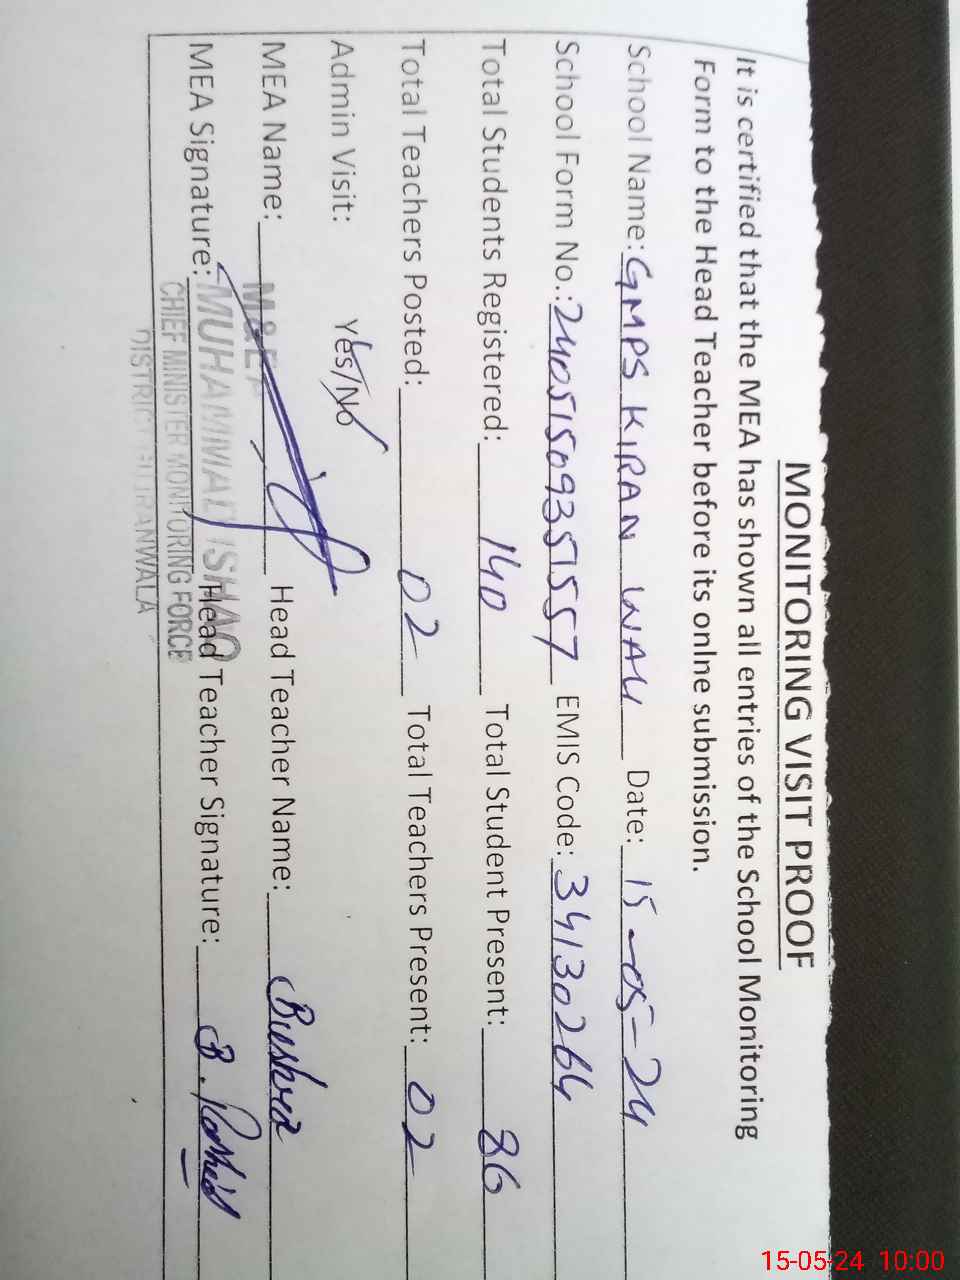 MONITORING VISIT PROOF
It is certified that the MEA has shown all entries of the School Monitoring
Form to the Head Teacher before its onlne submission.
School Name: GMPS KIRAN WALI Date: 15-05-24
School Form No.: 24051509351557 EMIS Code: 34130264
Total Students Registered: 140 Total Student Present: 86
Total Teachers Posted: 02 Total Teachers Present: 02
Admin Visit: Yes/No
MEA Name: Head Teacher Name: Bushra
MEA Signature: Head Teacher Signature: B. Rashid
M&EA
MUHAMMAD ISHAQ
CHIEF MINISTER MONITORING FORCE
DISTRICT GUJRANWALA
15-05-24 10:00